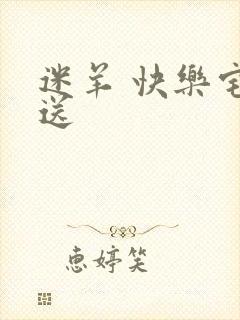 迷羊 快樂宅
送
恵婷笑